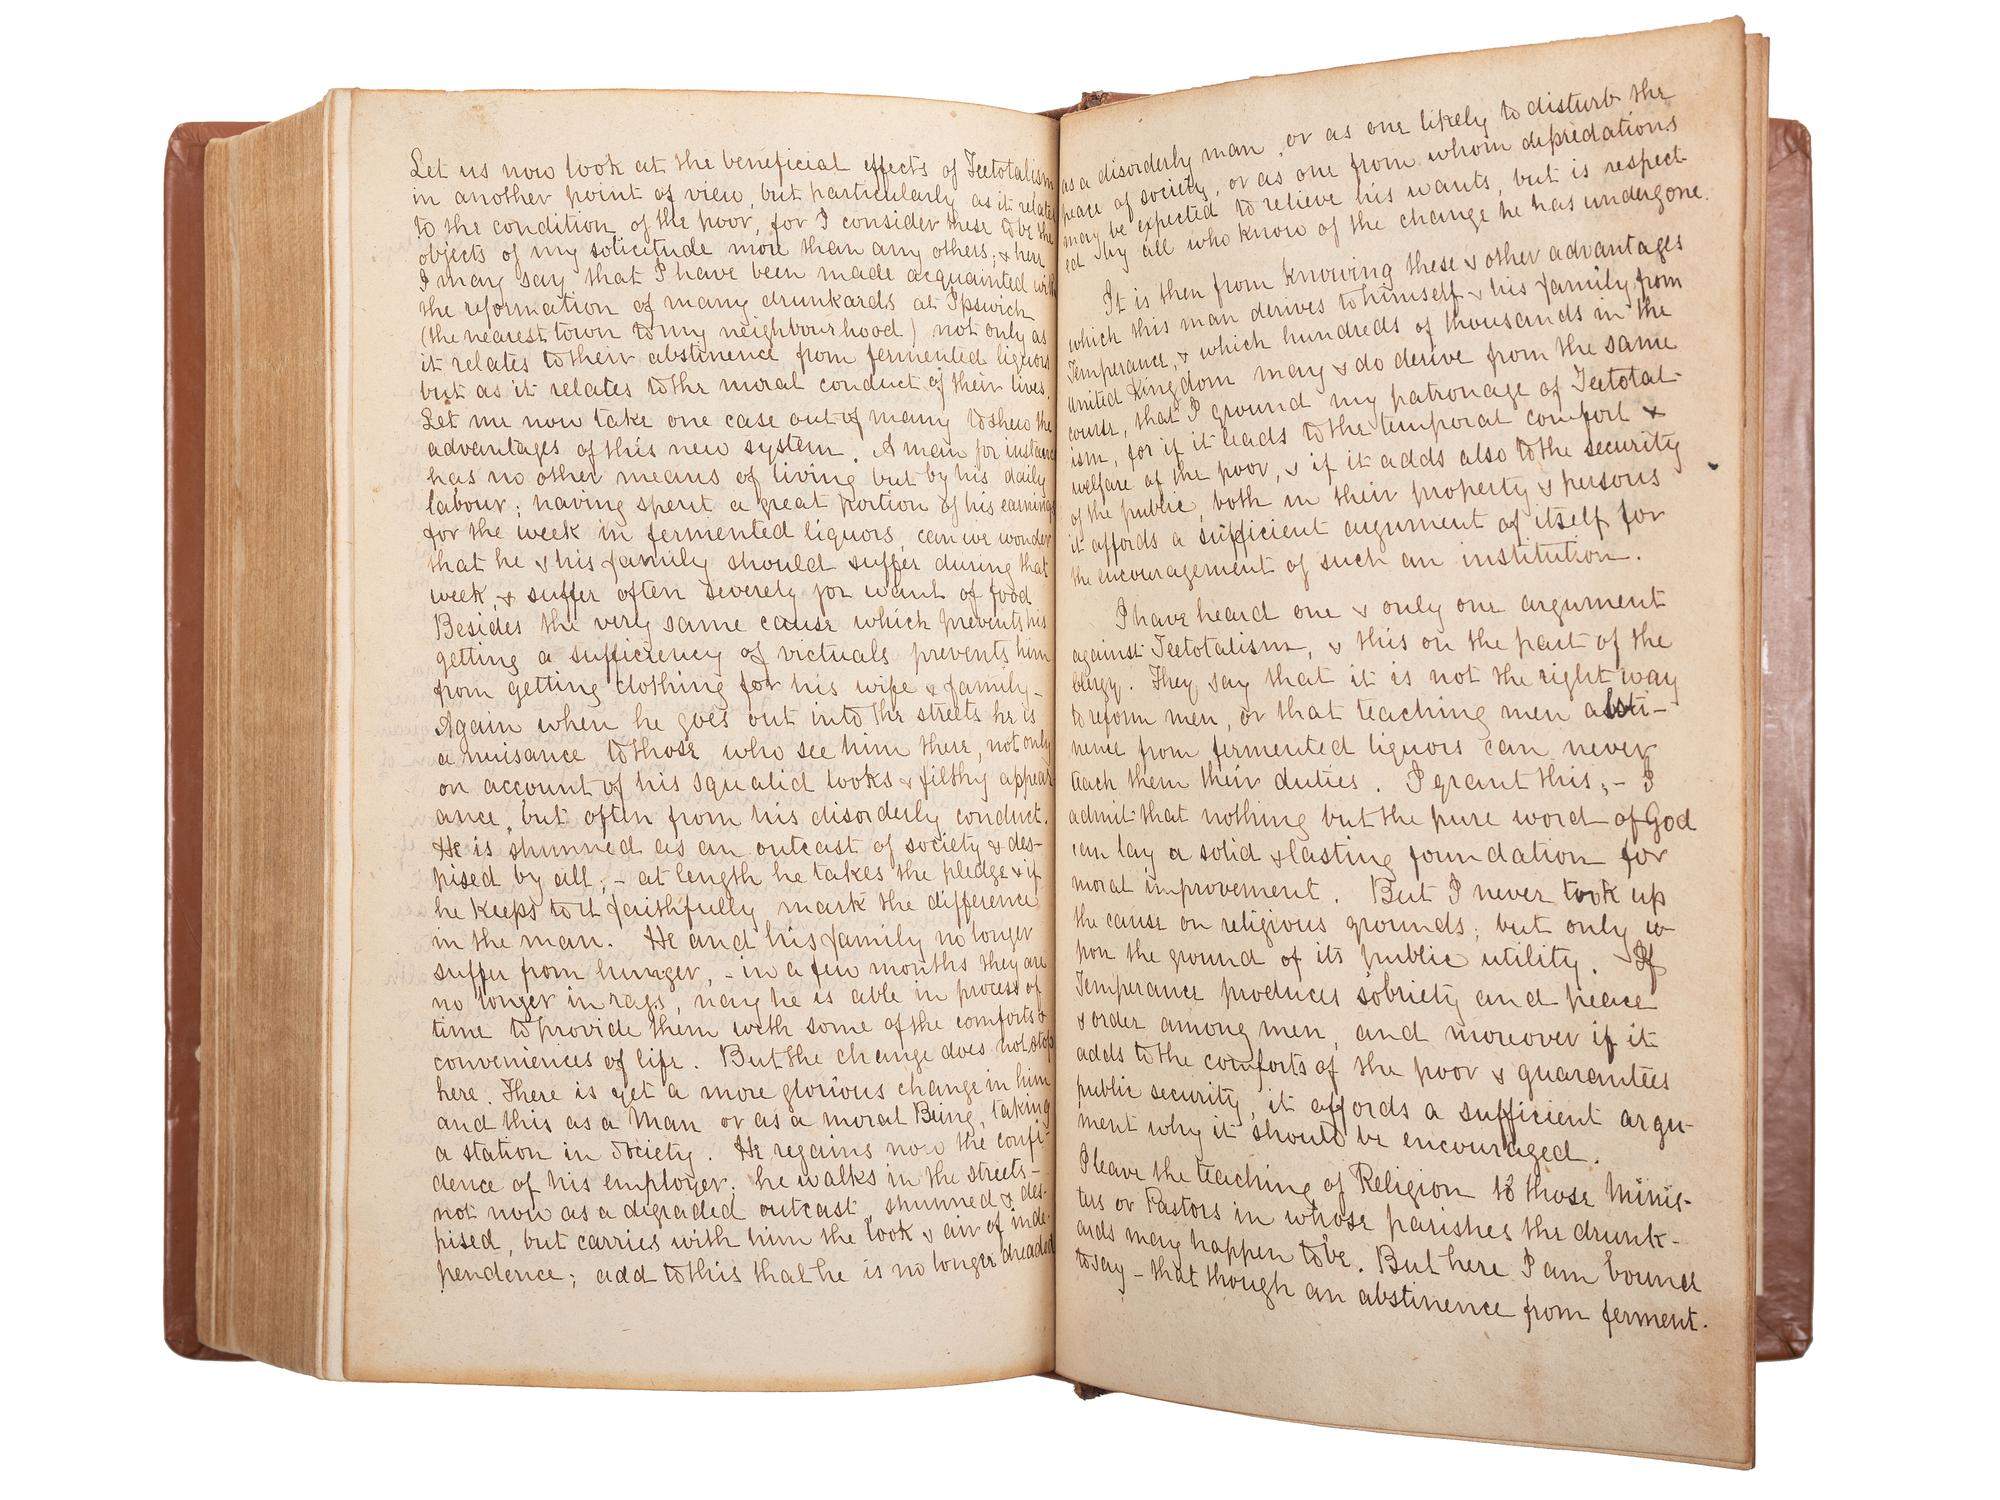 Let us now look at the beneficial effects of Teetotalism
in another point of view, but particularly as it relates
to the condition of the poor, for I consider these to be the
objects of my solicitude more than any others; & here
I may say that I have been made acquainted with
the reformation of many drunkards at Ipswich
(the nearest town to my neighbourhood) not only as
it relates to their abstinence from fermented liquors
but as it relates to the moral conduct of their lives.
Let me now take one case out of many to shew the
advantages of this new system. A man for instance
has no other means of living but by his daily
labour; having spent a great portion of his earnings
for the week in fermented liquors, can we wonder
that he & his family should suffer during that
week, & suffer often severely for want of food
Besides the very same cause which prevents his
getting a sufficiency of victuals prevents him
from getting clothing for his wife & family–
Again when he goes out into the streets he is
a nuisance to those who see him there, not only
on account of his squalid looks & filthy appear
ance, but often from his disorderly conduct.
He is shunned as an outcast of society & des–
pised by all; – at length he takes the pledge & if
he keeps to it faithfully mark the difference
in the man. He and his family no longer
suffer from hunger, – in a few months they are
no longer in rags, nay he is able in process of
time to provide them with some of the comforts &
conveniences of life. But the change does not stop
here. There is yet a more glorious change in him
and this as a Man or as a moral Being, taking
a station in Society. He regains now the confi–
dence of his employer. he walks in the streets–
not now as a degraded outcast, shunned & des–
pised, but carries with him the look & air of inde–
pendence; add to this that he is no longer dreaded
as a disorderly man, or as one likely to disturb the
peace of society, or as one from whom depredations
may be expected to relieve his wants, but is respect
ed by all who know of the change he has undergone.
It is then from knowing these & other advantages
which this man derives to himself & his family from
Temperance, & which hundreds of thousands in the
United Kingdom may & do derive from the same
course, that I ground my patronage of Teetotal–
ism, for if it leads to the temporal comfort &
welfare of the poor, & if it adds also to the security
of the public, both in their property & persons
it affords a sufficient argument of itself for
the encouragement of such an institution.
I have heard one & only one argument
against Teetotalism, & this on the part of the
Clergy. They say that it is not the right way
to reform men, or that teaching men absti–
nence from fermented liquors can never
teach them their duties. I grant this; – I
admit that nothing but the pure word of God
can lay a solid & lasting foundation for
moral improvement. But I never took up
the cause on religious grounds; but only u–
pon the ground of its public utility. If
Temperance produces sobriety and peace
& order among men, and moreover if it
adds to the comforts of the poor & guarantees
public security, it affords a sufficient argu–
ment why it should be encouraged.
I leave the teaching of Religion to those Minis–
ters or Pastors in whose parishes the drunk–
ards may happen to be. But here I am bound
to say – that though an abstinence from ferment.